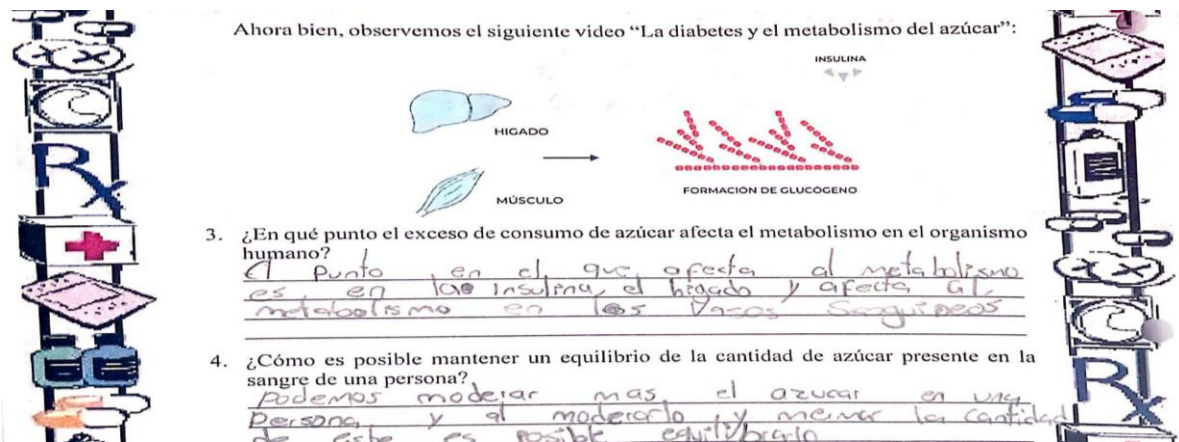 Ahora bien, observemos el siguiente video “La diabetes y el metabolismo del azúcar”:
INSULINA
HIGADO
MÚSCULO
FORMACIÓN DE GLUCÓGENO
3. ¿En qué punto el exceso de consumo de azúcar afecta el metabolismo en el organismo
humano?
El punto en el que afecta al metabolismo
es en la insulina, el higado y afecta al
metabolismo en los vasos Sanguineos
4. ¿Cómo es posible mantener un equilibrio de la cantidad de azúcar presente en la
sangre de una persona?
podemos moderar mas el azucar en una
Persona y al moderarlo y la cantidad
de este es posible equilibrarlo
Rx
Rx